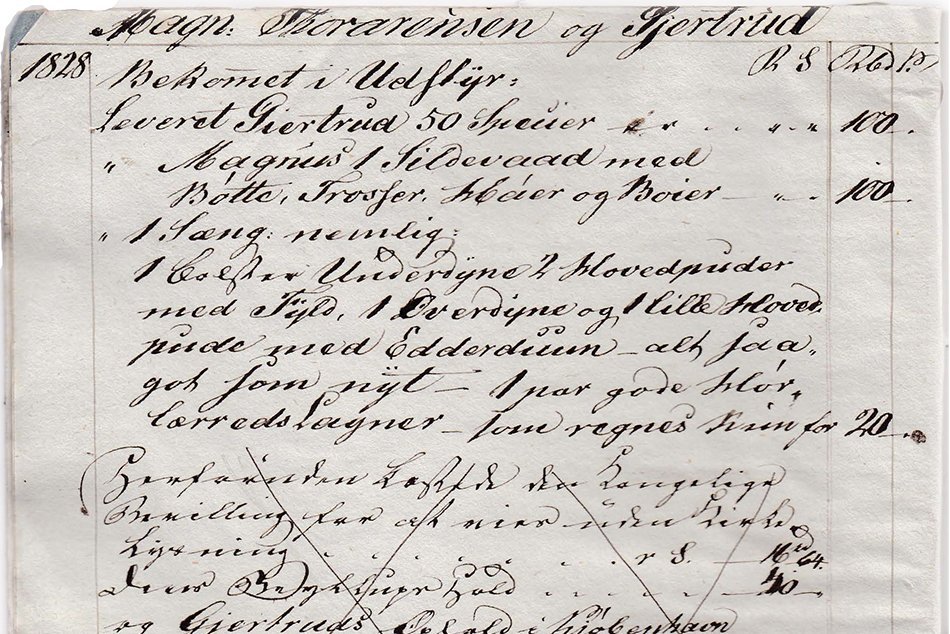 Magn: Thorarensen og Gjertrud
1828 Bekomet i Udstÿr: R S Rbd ß
Leveret Giertrud 50 Specier er „ „ 100.
„ Magnus 1 Sildevaad med
Bótte, Trosser, Háer og Boier — „ „ 100
„ 1 Sæng: nemlig:
1 Bolster Underdÿne 2 Hovedpuder
med Fÿld, 1 Overdÿne og 1 lille Hoved
pude med Edderduun — alt saa-
got som nÿt — 1 par gode Hór-
lærreds Lagner — som regnes kun for 20
Herforuden kostede den Kongelige
Bevilling for at vies uden Kirke
Lysning r S. 16 64.
Deres Bryllups Hold 40
og Gjertruds Ophold i Kióbenhavn